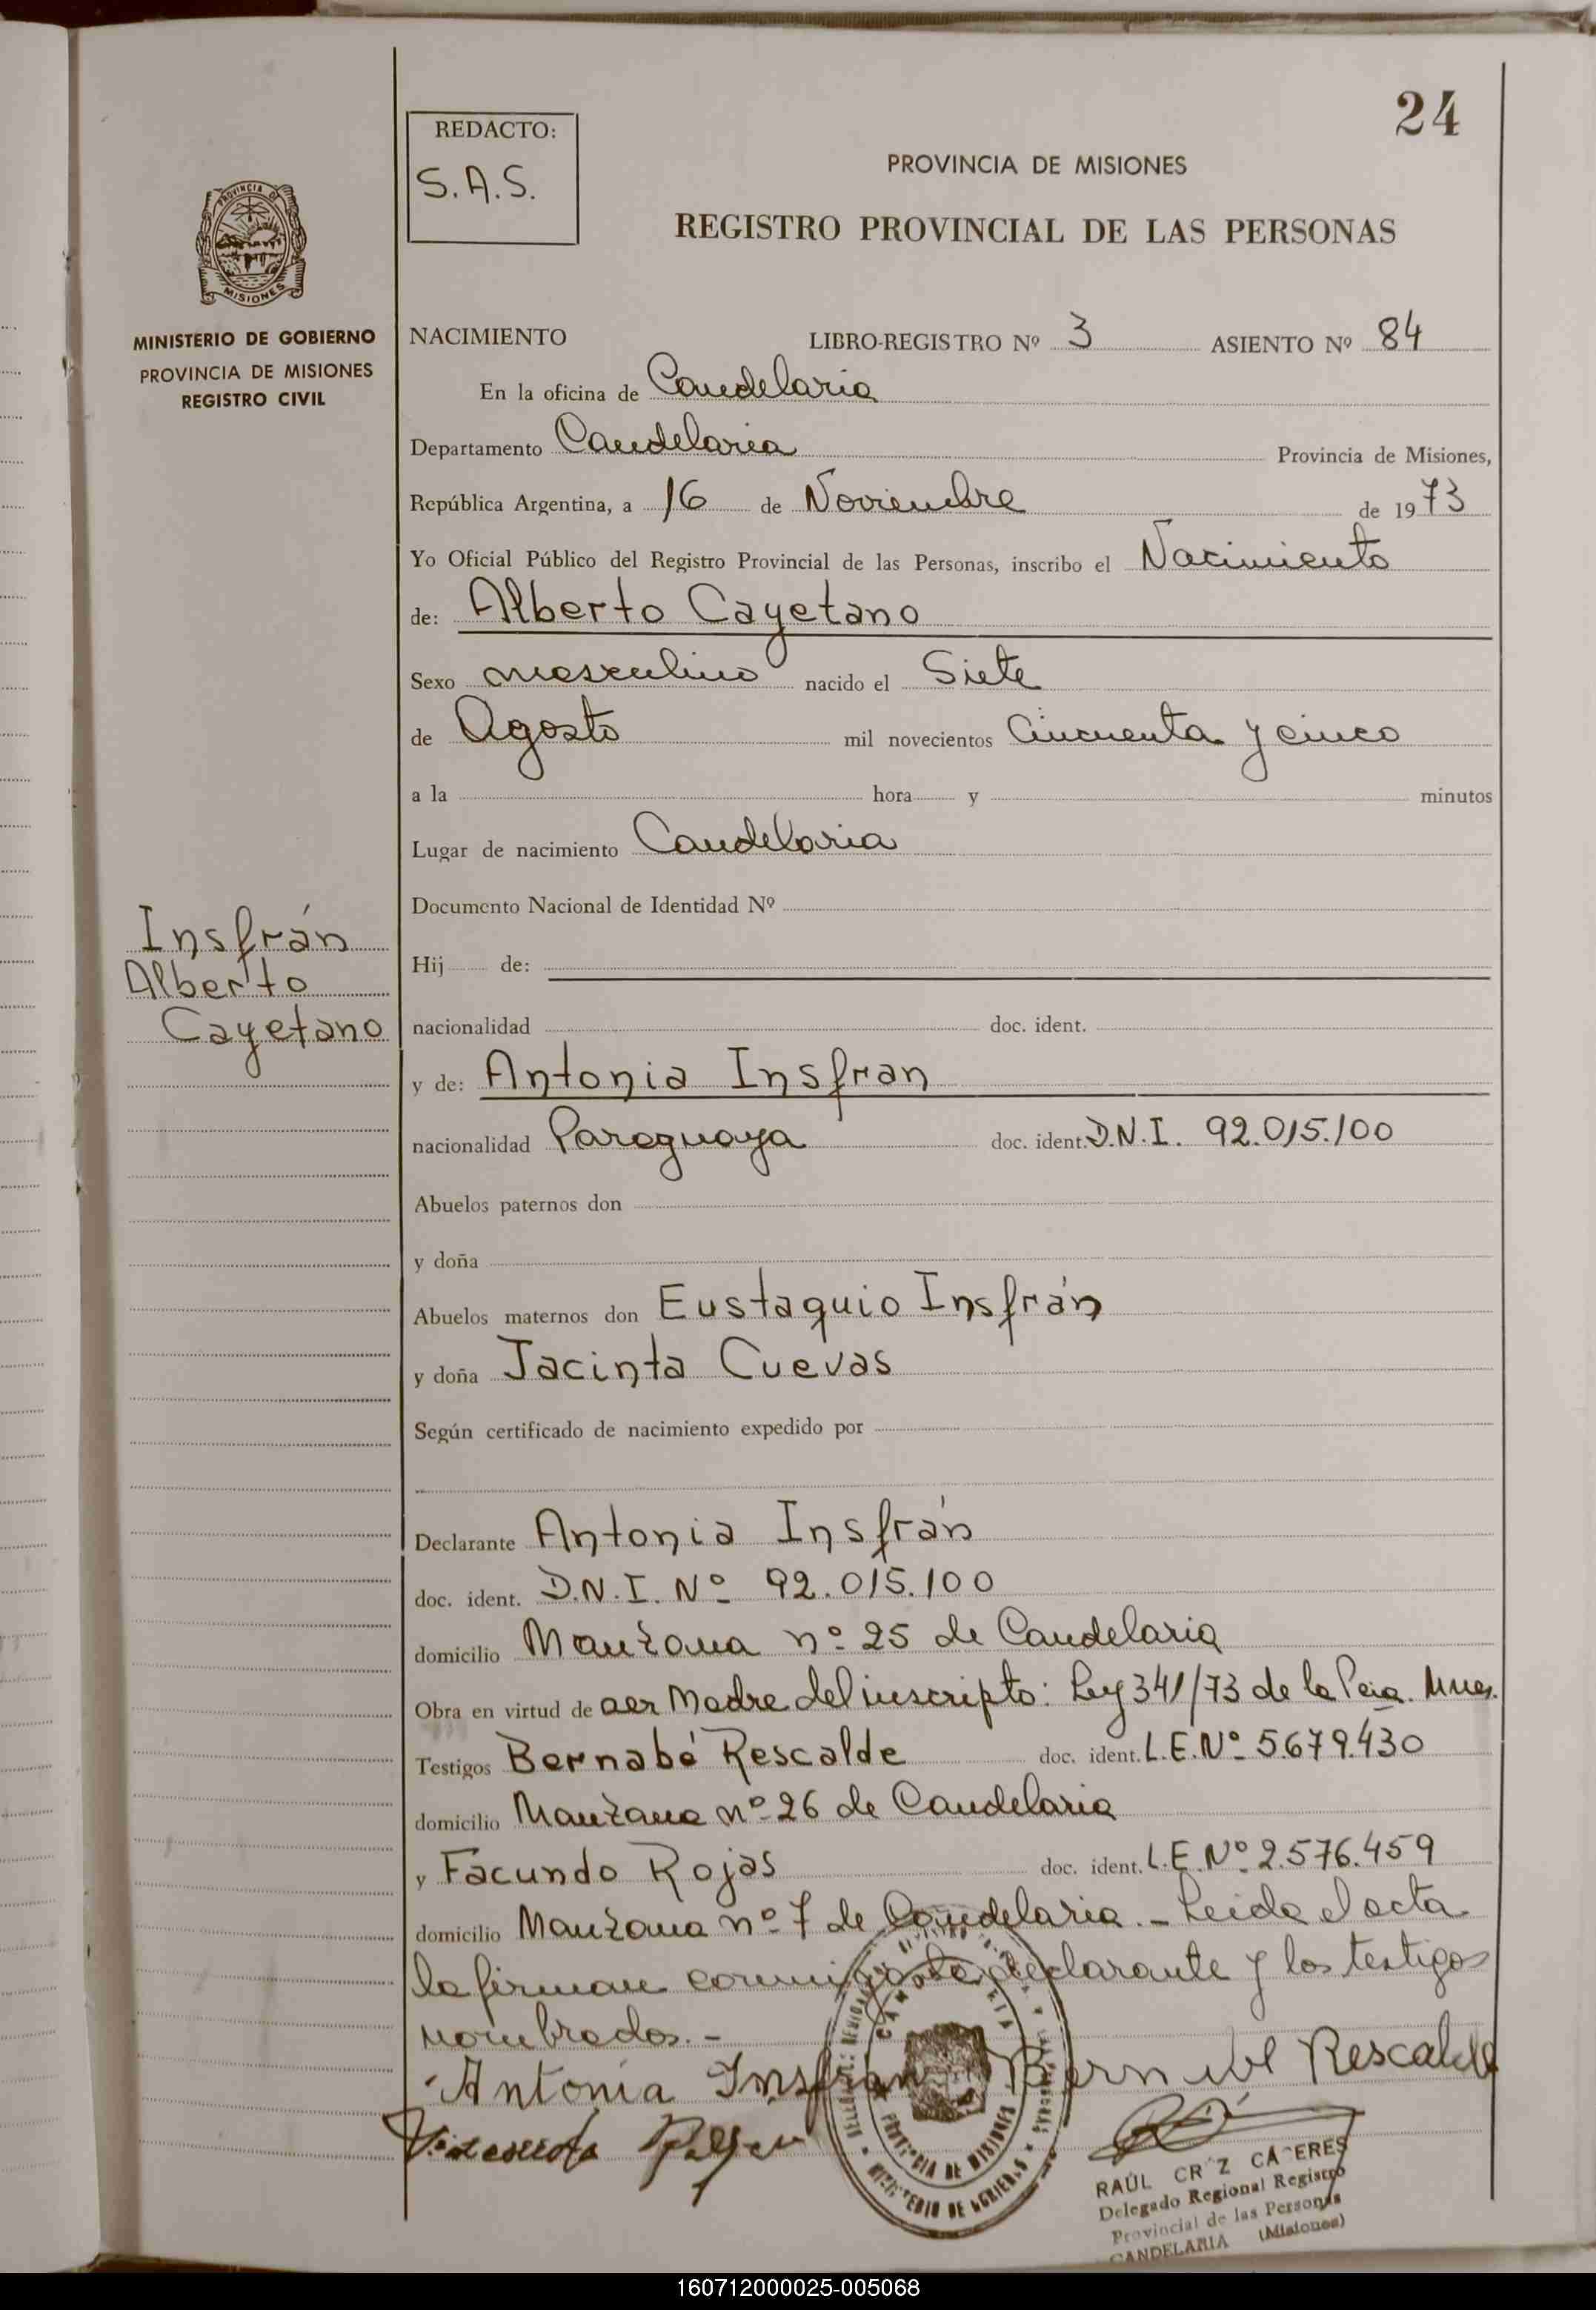 24
REDACTO:
S.A.S.
PROVINCIA DE MISIONES
REGISTRO PROVINCIAL DE LAS PERSONAS
PROVINCIA DE
MISIONES
MINISTERIO DE GOBIERNO
PROVINCIA DE MISIONES
REGISTRO CIVIL
NACIMIENTO LIBRO-REGISTRO Nº 3 ASIENTO Nº 84
En la oficina de Candelaria
Departamento Candelaria Provincia de Misiones,
República Argentina, a 16 de Noviembre de 1973
Yo Oficial Público del Registro Provincial de las Personas, inscribo el Nacimiento
de: Alberto Cayetano
Sexo masculino nacido el Siete
de Agosto mil novecientos Cincuenta y cinco
a la hora y minutos
Lugar de nacimiento Candelaria
Documento Nacional de Identidad Nº
Insfrán
Alberto
Cayetano
Hij de:
nacionalidad doc. ident.
y de: Antonia Insfran
nacionalidad Paraguaya doc. ident. D.N.I. 92.015.100
Abuelos paternos don
y doña
Abuelos maternos don Eustaquio Insfrán
y doña Jacinta Cuevas
Según certificado de nacimiento expedido por
Declarante Antonia Insfrán
doc. ident. D.N.I. Nº 92.015.100
domicilio Manzana nº 25 de Candelaria
Obra en virtud de ser Madre del inscripto: Ley 341/73 de la Pcia. Mnes.
Testigos Bernabé Rescalde doc. ident. L.E. Nº 5.679.430
domicilio Manzana nº 26 de Candelaria
y Facundo Rojas doc. ident. L.E. Nº 2.576.459
domicilio Manzana nº 7 de Candelaria.- Leida el acta
la firman conmigo la declarante y los testigos
nombrados.-
Antonia Insfran Rescalde
CANDELARIA
PROVINCIA DE MISIONES
MINISTERIO DE GOBIERNO
RAÚL CRUZ CACERES
Delegado Regional Registro
Provincial de las Personas
CANDELARIA (Misiones)
160712000025-005068